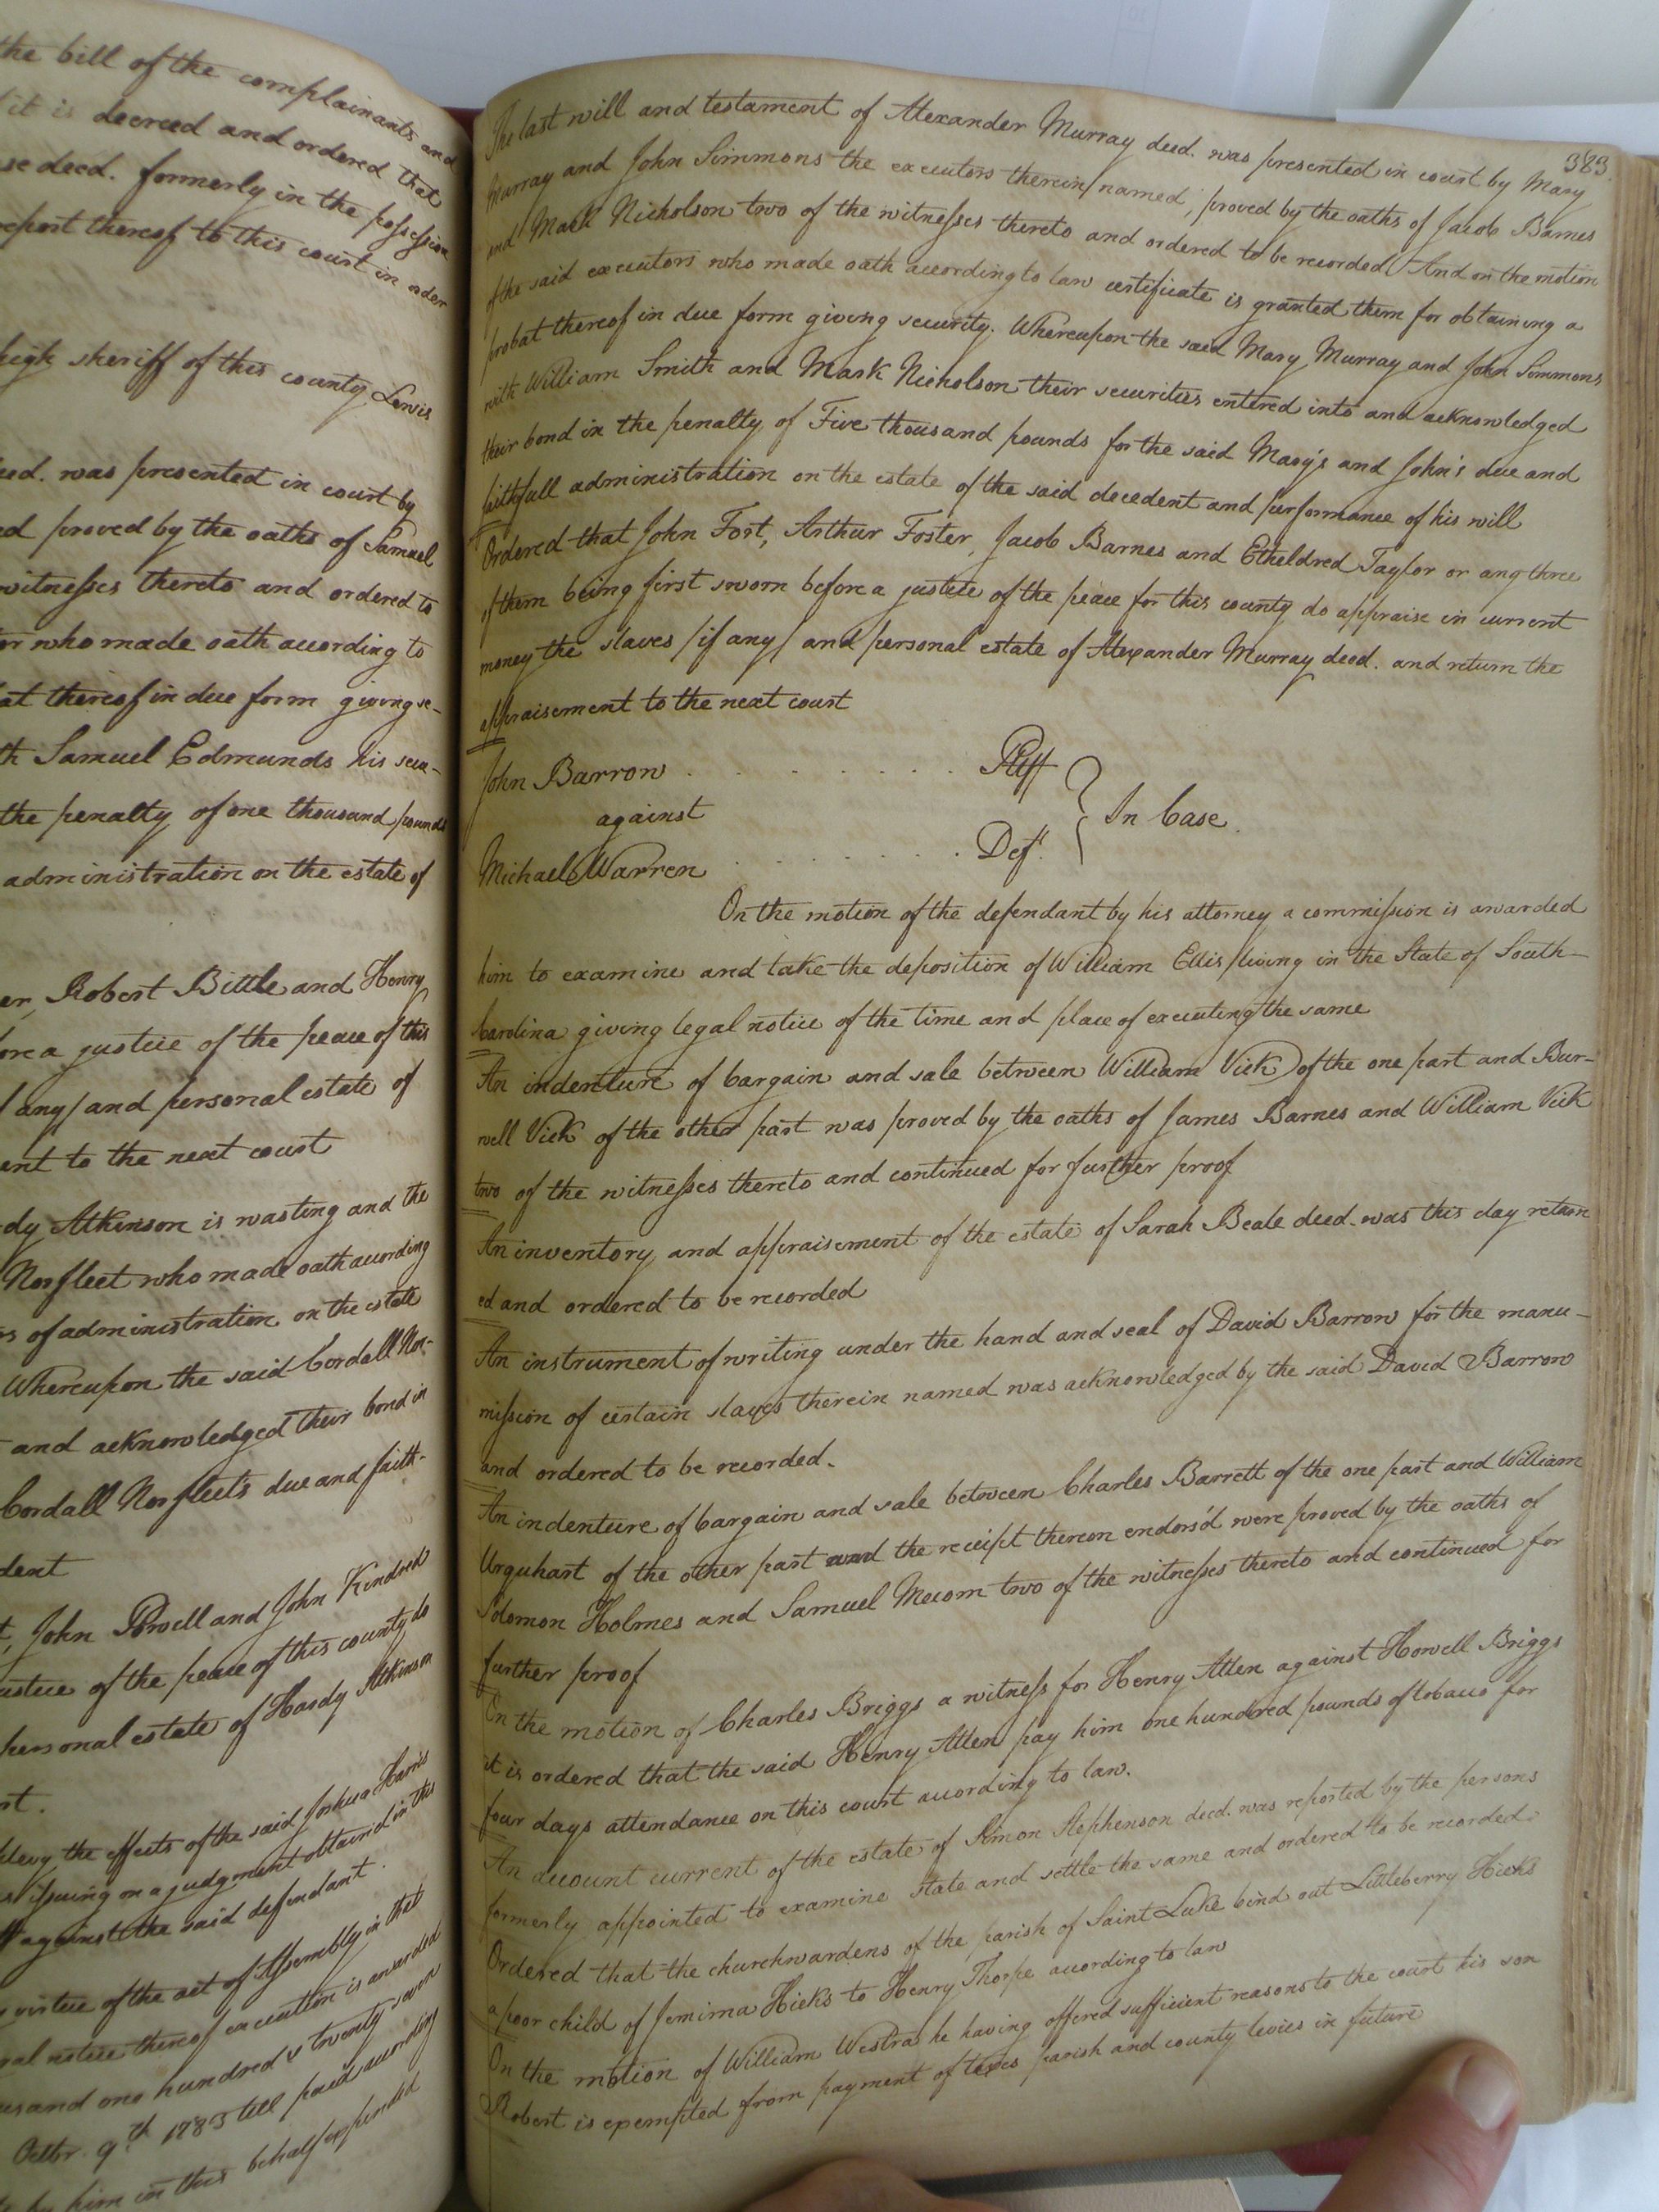 the bill of the complainants and
it is decreed and ordered that
se deed. formerly in the possession
report thereof to this court in order
high sheriff of this county Lewis
eed. was presented in court by
ed proved by the oaths of Samuel
witnesses thereto and ordered to
or who made oath according to
at thereof in due form giving se-
th Samuel Edmunds his secu-
the penalty of one thousand pounds
administration on the estate of
er, Robert Bittle and Henry
ore a justice of the peace of this
/ any / and personal estate of
ent to the next court
dy Atkinson is wasting and the
Norfleet who made oath according
rs of administration on the estate
Whereupon the said Cordall Nor-
and acknowledged their bond in
Cordall Norfleet's due and faith-
dent
t, John Powell and John Kindred
ustice of the peace of this county do
personal estate of Hardy Atkinson
rt.
levy the effects of the said Joshua Harris
issuing on a judgment obtained in this
ff against the said defendant.
virtue of the act of Assembly in that
gal notice thereof execution is awarded
usand one hundred & twenty seven
Octbr. 9th 1783 till paid according
by him in this behalf expended
383.
The last will and testament of Alexander Murray deed. was presented in court by Mary
Murray and John Simmons the executors therein named, proved by the oaths of Jacob Barnes
and Mark Nicholson two of the witnesses thereto and ordered to be recorded And on the motion
of the said executors who made oath according to law certificate is granted them for obtaining a
probat thereof in due form giving security. Whereupon the said Mary Murray and John Simmons
with William Smith and Mark Nicholson their securities entered into and acknowledged
their bond in the penalty of Five thousand pounds for the said Mary's and John's due and
faithfull administration on the estate of the said decedent and performance of his will
Ordered that John Fort, Arthur Foster, Jacob Barnes and Etheldred Taylor or any three
of them being first sworn before a justice of the peace for this county do appraise in current
money the slaves /if any/ and personal estate of Alexander Murray deed. and return the
appraisement to the next court
John Barrow . . . . . . . Pltff
against
In Case.
Michael Warren . . . . . . . Deft.
On the motion of the defendant by his attorney a commission is awarded
him to examine and take the deposition of William Ellis living in the State of South-
Carolina giving legal notice of the time and place of executing the same
An indenture of bargain and sale between William Vick of the one part and Bur-
well Vick of the other part was proved by the oaths of James Barnes and William Vick
two of the witnesses thereto and continued for further proof
An inventory and appraisement of the estate of Sarah Beale deed. was this day return
ed and ordered to be recorded
An instrument of writing under the hand and seal of David Barrow for the manu-
mission of certain slaves therein named was acknowledged by the said David Barrow
and ordered to be recorded.
An indenture of bargain and sale between Charles Barrett of the one part and William
Urquhart of the other part and the receipt thereon endors'd were proved by the oaths of
Solomon Holmes and Samuel Mecom two of the witnesses thereto and continued for
further proof
On the motion of Charles Briggs a witness for Henry Allen against Howell Briggs
it is ordered that the said Henry Allen pay him one hundred pounds of tobacco for
four days attendance on this court according to law.
An account current of the estate of Simon Stephenson deed. was reported by the persons
formerly appointed to examine state and settle the same and ordered to be recorded.
Ordered that the churchwardens of the parish of Saint Luke bind out Littleberry Hicks
a poor child of Jemima Hicks to Henry Thorpe according to law
On the motion of William Westra he having offered sufficient reasons to the court his son
Robert is exempted from payment of taxes parish and county levies in future